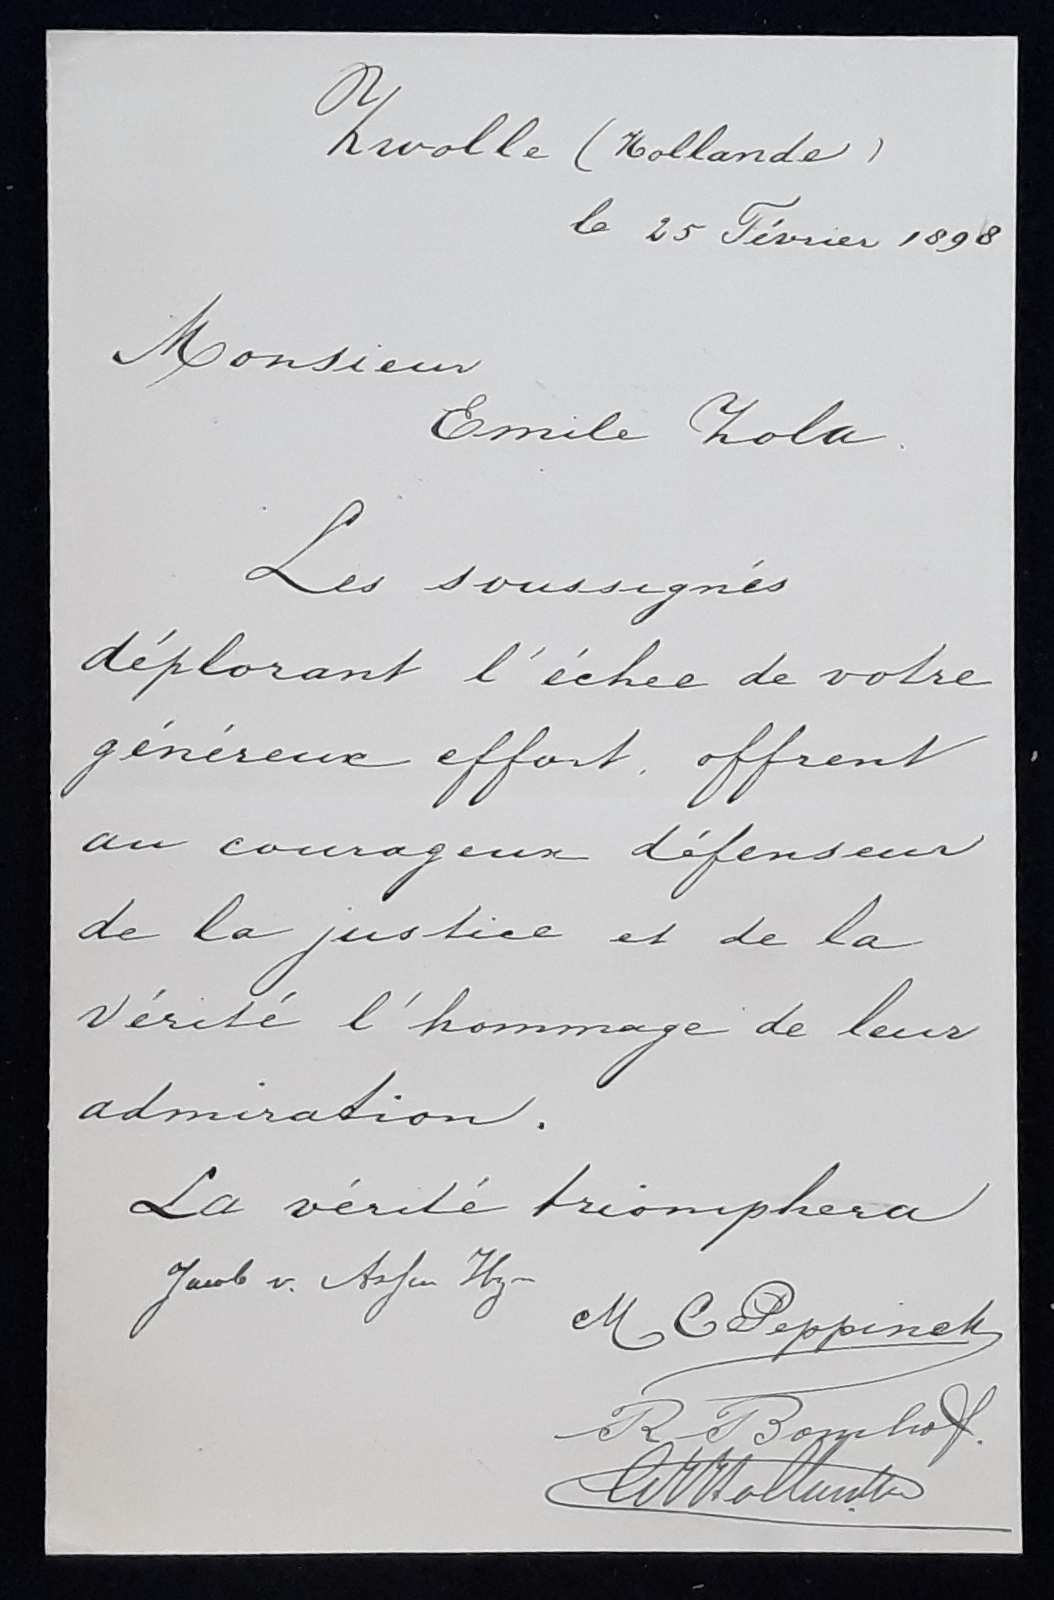 Zwolle (Hollande)
le 25 Février 1898
Monsieur
Emile Zola.
Les soussignés
déplorant l'échec de votre
généreux effort, offrent
au courageux défenseur
de la justice et de la
vérité l'hommage de leur
admiration.
La vérité triomphera
Jacob v. Assen Hzn
M C Peppinck
R Bomhoff.